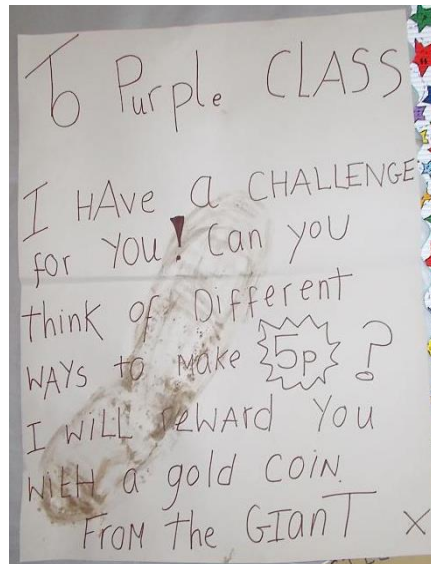 To Purple CLASS
I HAve a CHALLENGE
for YOU! Can you
think of Different
WAYs to make 5p?
I WiLL reward YOU
WitH a gold COIN.
From the GIanT X